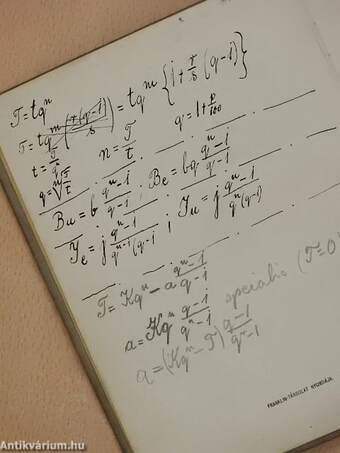 T = tqⁿ
T = tqᵐ = tqᵐ {1 + r/s (q-1)}
t = T/qⁿ n = T/t q = 1 + p/100
q = ⁿ√T/t
Bu = b qⁿ-1/q-1 ; Be = bq qⁿ-1/q-1
Je = j qⁿ-1/qⁿ⁻¹(q-1) ; Ju = j qⁿ-1/qⁿ(q-1)
T = Kqⁿ - a qⁿ-1/q-1
a = Kqⁿ q-1/qⁿ-1 speciális (T=0)
a = (Kqⁿ-T) q-1/qⁿ-1
FRANKLIN-TÁRSULAT NYOMDÁJA.
Antikvárium.hu